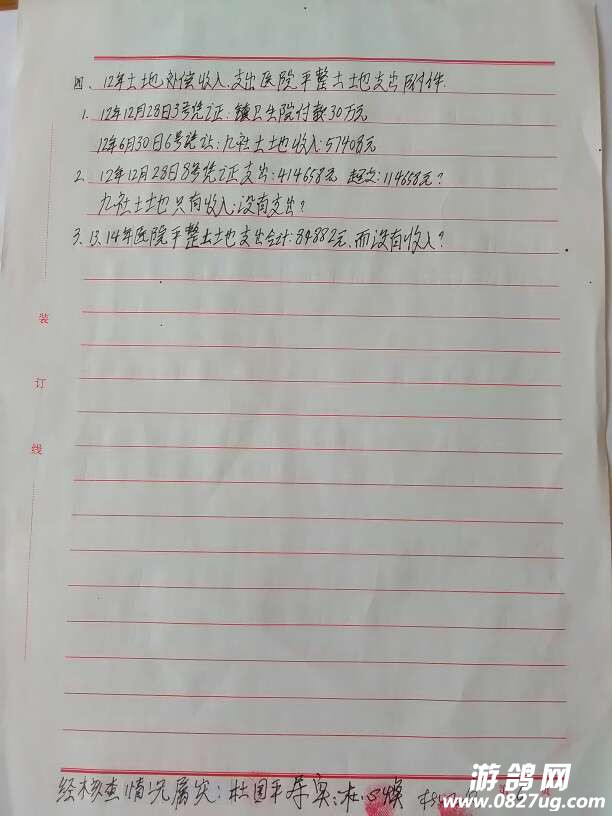 四、12年土地补偿收入、支出医院平整土地支出附件.
1. 12年12月28日3号凭证:镇卫生院付款30万元
12年6月30日6号凭证:九社土地收入:57408元
2. 12年12月28日8号凭证支出:414658元 超支:114658元?
九社土地只有收入;没有支出?
3. 13.14年医院平整土地支出合计:84882元、而没有收入?
装
订
线
经核查情况属实: 杜国平 李
游鸽网
www.0827ug.com